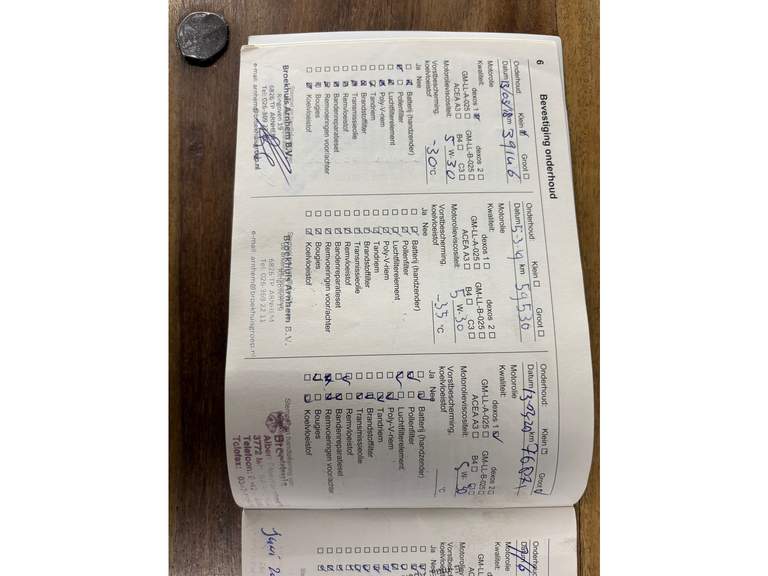 6
Bevestiging onderhoud
Onderhoud: Klein Groot
Datum 13/03/18 km 39146
Motorolie
Kwaliteit: dexos 1 dexos 2
GM-LL-A-025 GM-LL-B-025
ACEA A3 B4 C3
Motorolieviscositeit: 5 W-30
Vorstbescherming,
koelvloeistof -30 °C
Ja Nee
Batterij (handzender)
Pollenfilter
Luchtfilterelement
Poly-V-riem
Tandriem
Brandstoffilter
Transmissieolie
Remvloeistof
Bandenreparatieset
Remvoeringen voor/achter
Bougies
Koelvloeistof
Broekhuis Arnhem B.V.
6826 TP ARNHEM
Onderhoud: Klein Groot
Datum 5-3-19 km 59530
Motorolie
Kwaliteit: dexos 1 dexos 2
GM-LL-A-025 GM-LL-B-025
ACEA A3 B4 C3
Motorolieviscositeit: 5 W-30
Vorstbescherming,
koelvloeistof -35 °C
Ja Nee
Batterij (handzender)
Pollenfilter
Luchtfilterelement
Poly-V-riem
Tandriem
Brandstoffilter
Transmissieolie
Remvloeistof
Bandenreparatieset
Remvoeringen voor/achter
Bougies
Koelvloeistof
Broekhuis Arnhem B.V.
6826 TP ARNHEM
Tel: 026-369 22 11
e-mail: arnhem@broekhuisgroep.nl
Onderhoud: Klein Groot
Datum km
Motorolie
Kwaliteit: dexos 1 dexos 2
GM-LL-A-025 GM-LL-B-025
ACEA A3 B4
Motorolieviscositeit: 5 W- 30
Vorstbescherming,
koelvloeistof °C
Ja Nee
Batterij (handzender)
Pollenfilter
Luchtfilterelement
Poly-V-riem
Tandriem
Brandstoffilter
Transmissieolie
Remvloeistof
Bandenreparatieset
Remvoeringen voor/achter
Bougies
Koelvloeistof
3772
Telefoon:
Telefax:
Juni